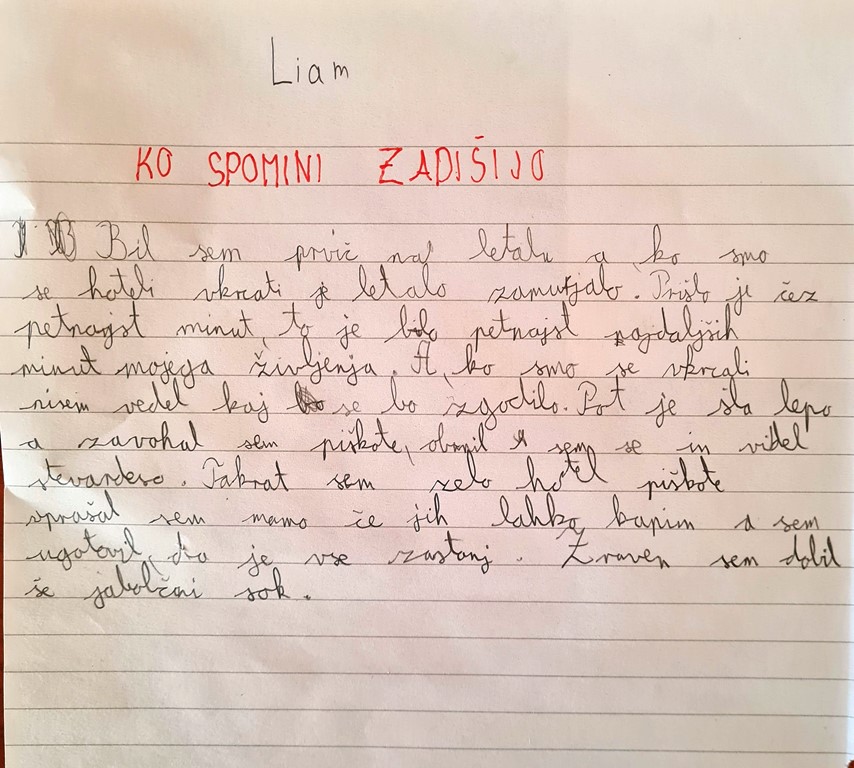 Liam
KO SPOMINI ZADIŠIJO
Bil sem prvič na letalu a ko smo
se hoteli vkrcati je letalo zamujalo. Prišlo je čez
petnajst minut, to je bilo petnajst najdaljših
minut mojega življenja. A, ko smo se vkrcali
nisem vedel kaj se bo zgodilo. Pot je šla lepo
a zavohal sem piškote, obrnil sem se in videl
stevardeso. Takrat sem zelo hotel piškote
vprašal sem mamo če jih lahko kupim a sem
ugotovil, da je vse zastonj. Zraven sem dobil
še jabolčni sok.